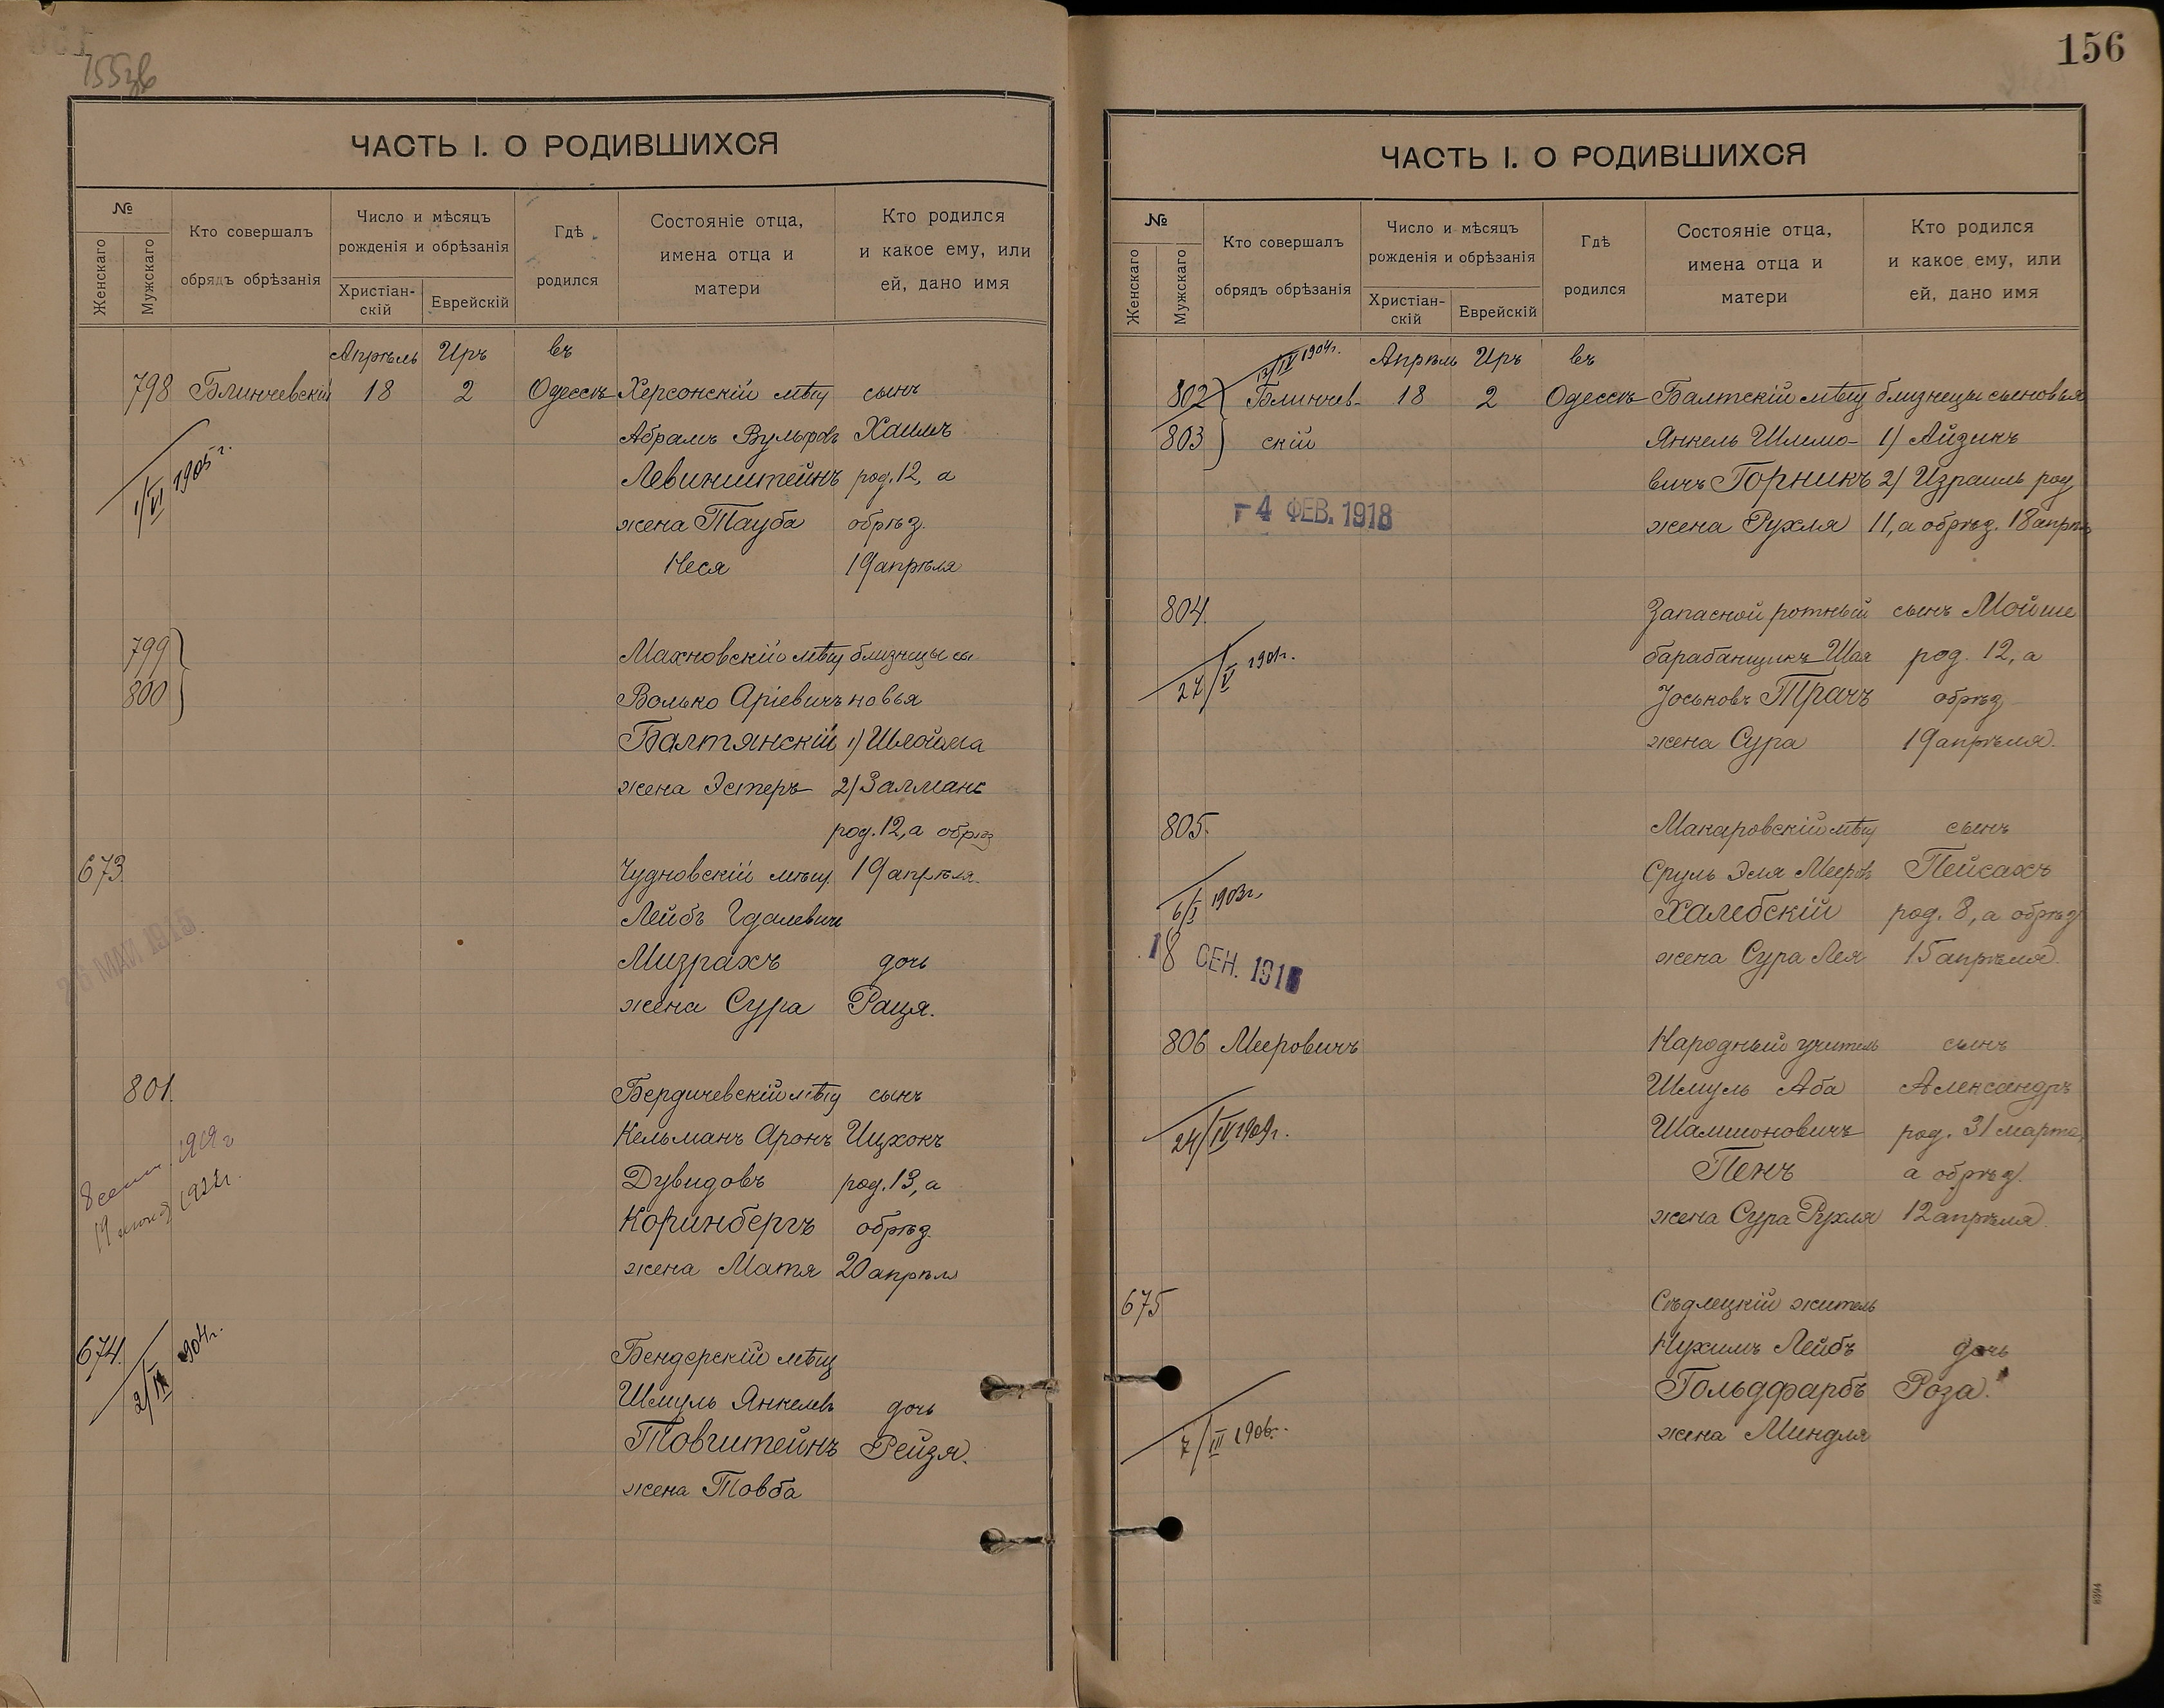 155зв
ЧАСТЬ I. О РОДИВШИХСЯ
№
Женскаго
Мужскаго
Кто совершалъ
обрядъ обрѣзанія
Число и мѣсяцъ
рожденія и обрѣзанія
Христіан-
скій
Еврейскій
Гдѣ
родился
Состояніе отца,
имена отца и
матери
Кто родился
и какое ему, или
ей, дано имя
Апрѣль Иръ въ
798 Блинчевскій 18 2 Одессѣ Херсонскій мѣщ сынъ
Абрамъ Вульфовъ Хаимъ
Левинштейнъ род. 12, а
1/VI 1905 г.
жена Тауба обрѣз.
Неся 19 апрѣля
799 Махновскій мѣщ близнецы сы
800 Волько Аріевичъ новья
Балтянскій 1) Шлойма
жена Эстеръ 2) Залманъ
род. 12, а обрѣз
673. Чудновскій мѣщ. 19 апрѣля.
Лейбъ Гдалевич
25 МАЙ 1915.
Мизрахъ дочь
жена Сура Раця.
801. Бердичевскій мѣщ сынъ
Кельманъ Аронъ Ицхокъ
1919 г
Дувидовъ род. 13, а
1922 г.
Коринбергъ обрѣз.
жена Матя 20 апрѣля
674. Бендерскій мѣщ
1904 г.
Шмуль Янкелев дочь
Товштейнъ Рейзя.
жена Товба
156
ЧАСТЬ I. О РОДИВШИХСЯ
№
Женскаго
Мужскаго
Кто совершалъ
обрядъ обрѣзанія
Число и мѣсяцъ
рожденія и обрѣзанія
Христіан-
скій
Еврейскій
Гдѣ
родился
Состояніе отца,
имена отца и
матери
Кто родился
и какое ему, или
ей, дано имя
13/IV 1904 г. Апрѣль Иръ въ
802 Блинчев- 18 2 Одессѣ Балтскій мѣщ близнецы сыновья
803 скій Янкель Шлемо- 1) Айзикъ
вичъ Горникъ 2) Израиль род
4 ФЕВ. 1918
жена Рухля 11, а обрѣз. 18 апрѣл
804. Запасной ротный сынъ Мойше
барабанщикъ Шая род. 12, а
27/V 1901 г.
Іоськовъ Трачъ обрѣз
жена Сура 19 апрѣля.
805. Макаровскій мѣщ сынъ
Сруль Эля Мееровъ Пейсахъ
6/I 1903 г.
Халебскій род. 8, а обрѣз
18 СЕН. 191
жена Сура Лея 15 апрѣля.
806 Мееровичъ Народный учитель сынъ
Шмуль Аба Александръ
24/IV 1909 г.
Шамшоновичъ род. 31 марта,
Пенъ а обрѣз.
жена Сура Рухля 12 апрѣля.
675 Сѣдлецкій житель
Нухимъ Лейбъ дочь
Гольдфарбъ Роза.
7/III 1906 г.
жена Миндля
8394